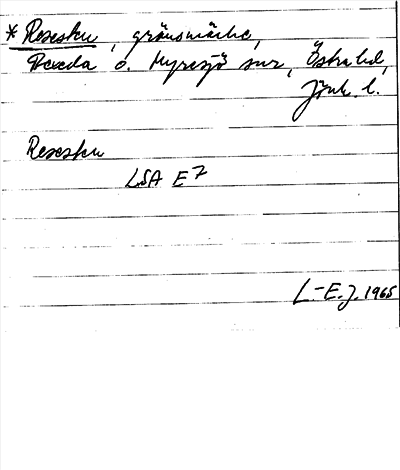 * Resesku, gränsmärke,
Bexeda o. Myresjö snr, Östra hd,
Jönk. l.
Resesku
LSA E7
L-E.J. 1965